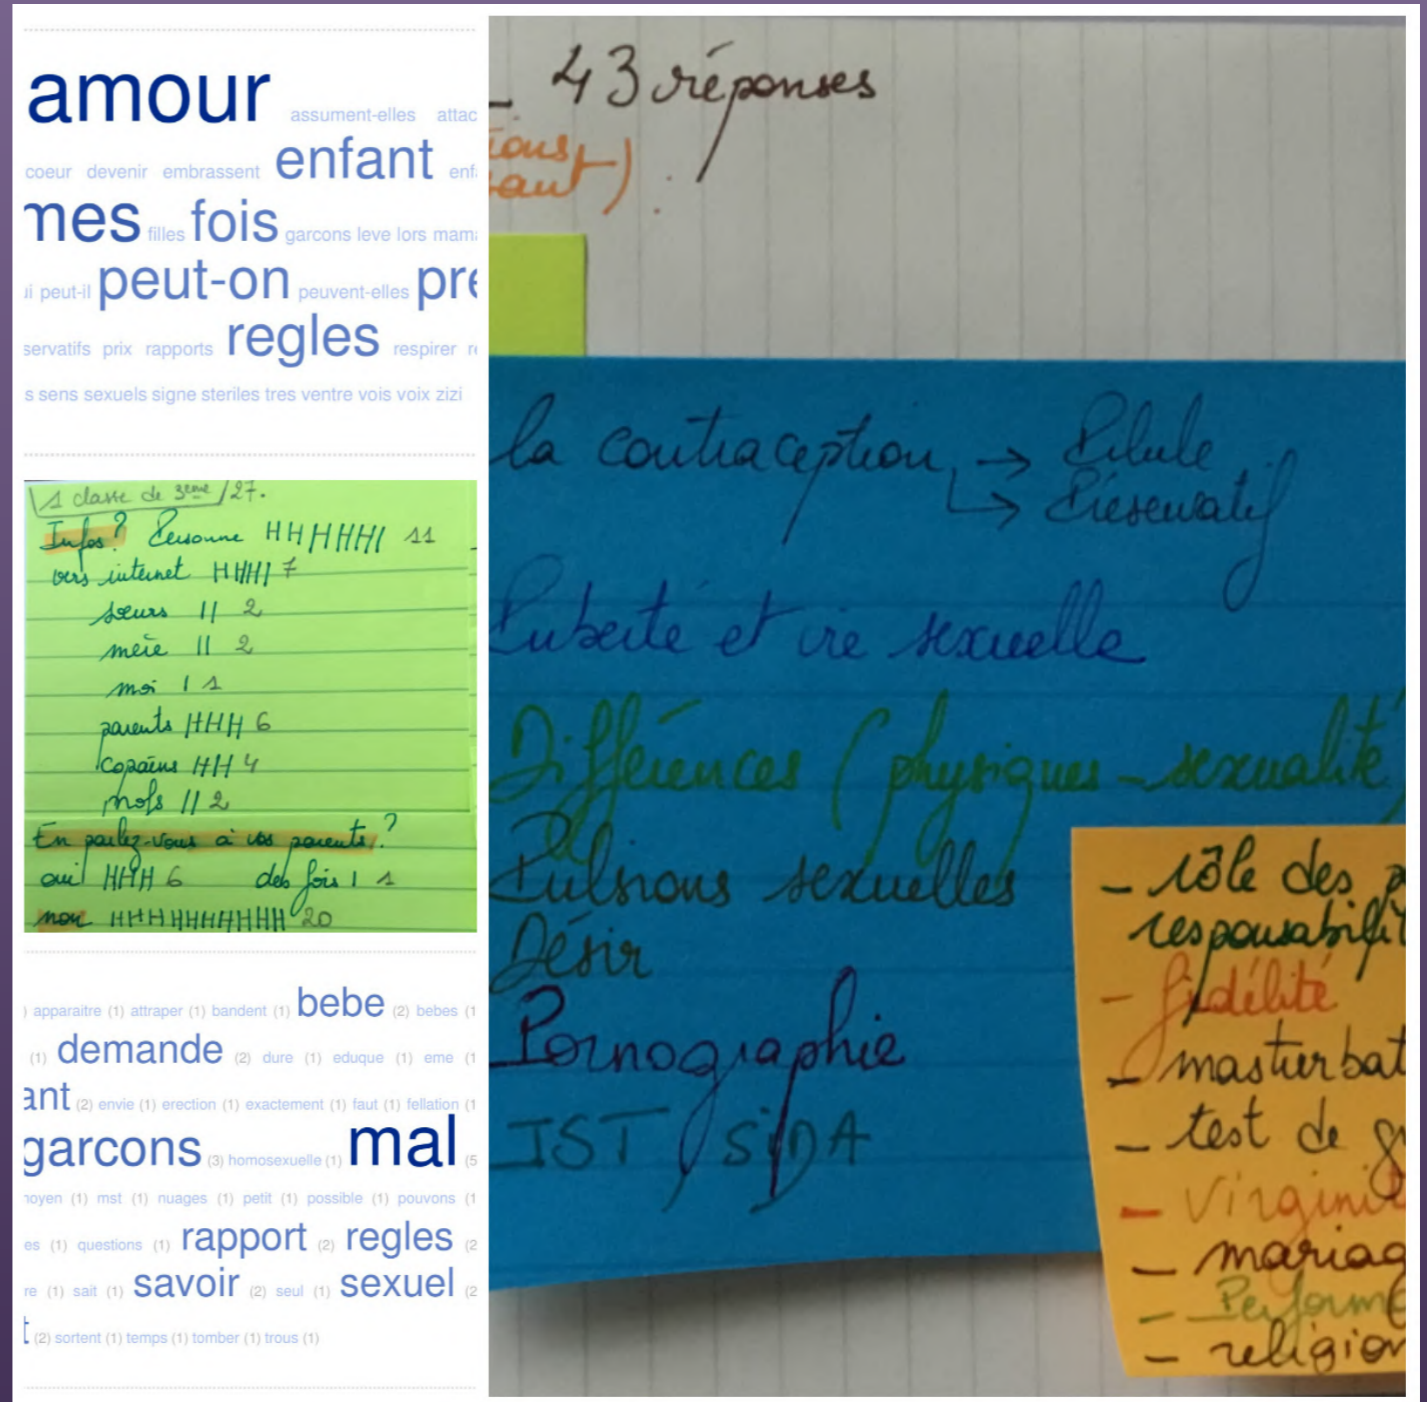 amour assument-elles attac
coeur devenir embrassent enfant enf
mes filles fois garcons leve lors mam
ui peut-il peut-on peuvent-elles pré
servatifs prix rapports regles respirer
s sens sexuels signe steriles tres ventre vois voix zizi
1 classe de 3ème /27.
Infos? Personne HHHHHI 11
vers internet HHHI 7
sœurs II 2
mère II 2
moi I 1
parents HHH 6
copains HH 4
profs II 2
En parlez-vous à vos parents?
oui HHH 6 des fois I 1
non HHHHHHHHHH 20
apparaitre (1) attraper (1) bandent (1) bebe (2) bebes (1
(1) demande (2) dure (1) eduque (1) eme (1
ant (2) envie (1) erection (1) exactement (1) faut (1) fellation (1
garcons (3) homosexuelle (1) mal (5
noyen (1) mst (1) nuages (1) petit (1) possible (1) pouvons (1
es (1) questions (1) rapport (2) regles (2
re (1) sait (1) savoir (2) seul (1) sexuel (2
t (2) sortent (1) temps (1) tomber (1) trous (1)
- 43 réponses
la contraception → Pilule
↳ Préservatif
Puberté et vie sexuelle
Différences (physiques - sexualité)
Pulsions sexuelles
Désir
Pornographie
IST / SIDA
- rôle des p
responsabili
- fidélité
- masturbat
- test de g
- Virginit
- mariag
- Perform
- religion